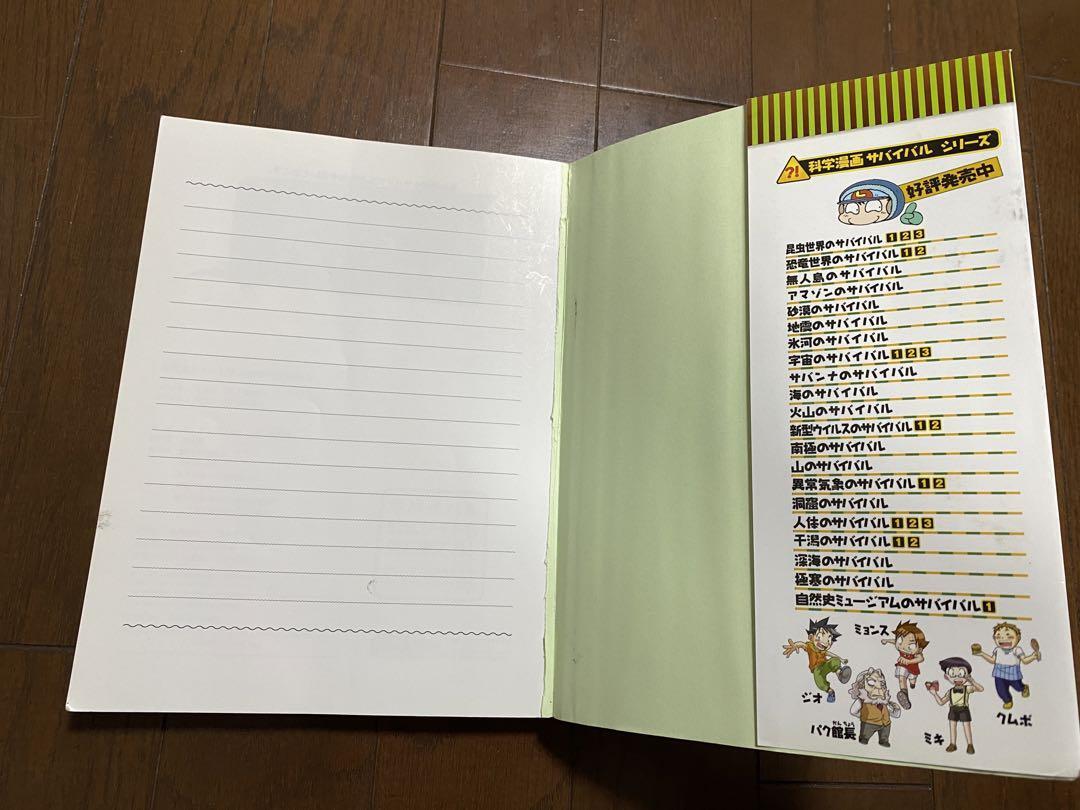 ?! 科学漫画 サバイバル シリーズ
好評発売中
昆虫世界のサバイバル 1 2 3
恐竜世界のサバイバル 1 2
無人島のサバイバル
アマゾンのサバイバル
砂漠のサバイバル
地震のサバイバル
氷河のサバイバル
宇宙のサバイバル 1 2 3
サバンナのサバイバル
海のサバイバル
火山のサバイバル
新型ウイルスのサバイバル 1 2
南極のサバイバル
山のサバイバル
異常気象のサバイバル 1 2
洞窟のサバイバル
人体のサバイバル 1 2 3
干潟のサバイバル 1 2
深海のサバイバル
極寒のサバイバル
自然史ミュージアムのサバイバル 1
ミョンス
ジオ
かんちょう
パク館長
ミキ
クムボ